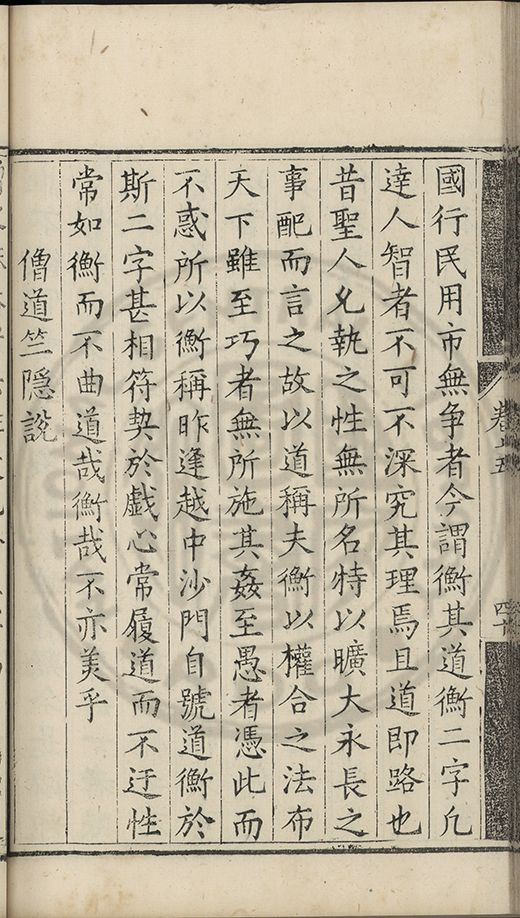 國行民用市無爭者今謂衡其道衡二字凢
達人智者不可不深究其理焉且道即路也
昔聖人允執之性無所名特以曠大永長之
事配而言之故以道稱夫衡以權合之法布
天下雖至巧者無所施其姦至愚者憑此而
不惑所以衡稱昨逢越中沙門自號道衡於
斯二字甚相符契於戲心常履道而不迂性
常如衡而不曲道哉衡哉不亦美乎
僧道竺隱說